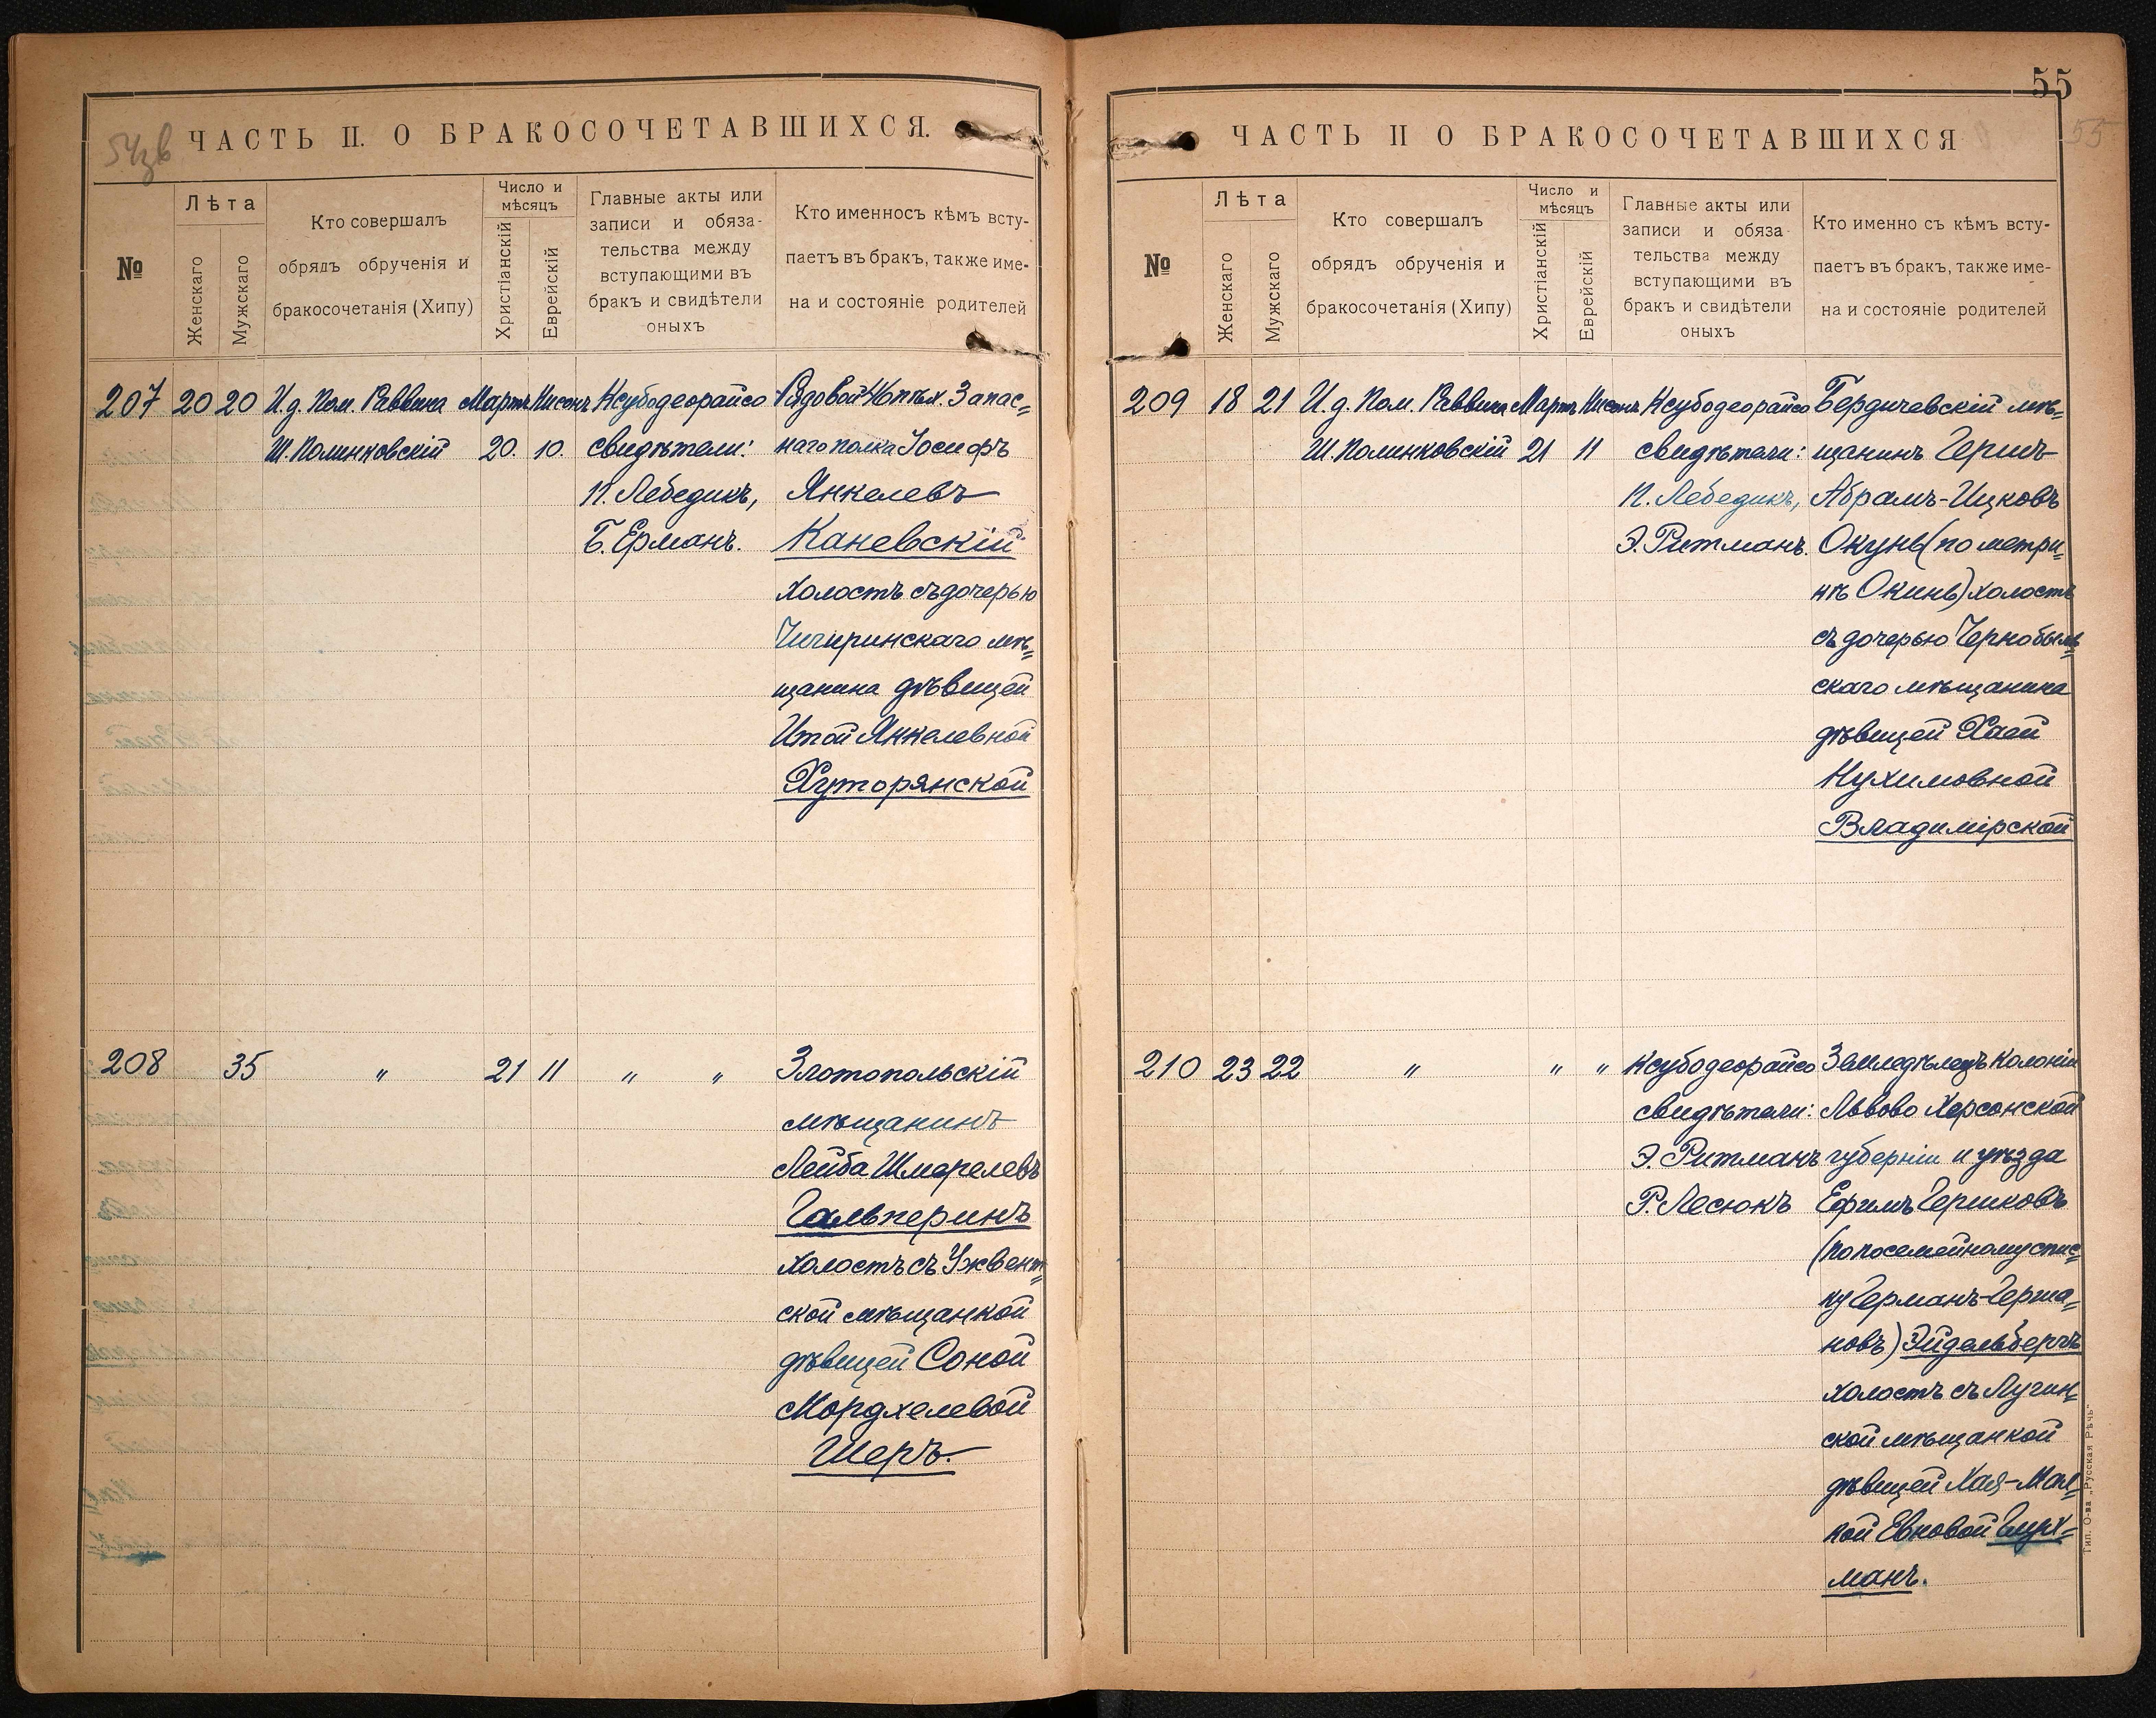 54зв
ЧАСТЬ II. О БРАКОСОЧЕТАВШИХСЯ.
№
Лѣта
Женскаго
Мужскаго
Кто совершалъ
обрядъ обрученія и
бракосочетанія (Хипу)
Число и
мѣсяцъ
Христіанскій
Еврейскій
Главные акты или
записи и обяза-
тельства между
вступающими въ
бракъ и свидѣтели
оныхъ
Кто именносъ кѣмъ всту-
паетъ въ бракъ, также име-
на и состояніе родителей
207 20 20 И.д. Пом. Раввина Мартъ Нисонъ Ксубодеорайсо
Ш. Полинковскій 20. 10. свидѣтели:
П. Лебедикъ,
Б. Ерманъ.
Рядовой Запас=
наго полка Іосифъ
Янкелевъ
Каневскій
холостъ съ дочерью
Чигиринскаго мѣ=
щанина дѣвицей
Итой Янкелевной
Хуторянской
208 35 " 21 11 " "
Златопольскій
мѣщанинъ
Лейба Шмерелевъ
Гальперинъ
холостъ съ Ужвент=
ской мѣщанкой
дѣвицей Соной
Мордхелевой
Шеръ.
55
55
ЧАСТЬ II О БРАКОСОЧЕТАВШИХСЯ
№
Лѣта
Женскаго
Мужскаго
Кто совершалъ
обрядъ обрученія и
бракосочетанія (Хипу)
Число и
мѣсяцъ
Христіанскій
Еврейскій
Главные акты или
записи и обяза-
тельства между
вступающими въ
бракъ и свидѣтели
оныхъ
Кто именно съ кѣмъ всту-
паетъ въ бракъ, также име-
на и состояніе родителей
209 18 21 И.д. Пом. Раввина Мартъ Нисонъ Ксубодеорайсо
Ш. Полинковскій 21 11 свидѣтели:
П. Лебедикъ,
Э. Ритманъ.
Бердичевскій мѣ=
щанинъ Герш
Абрамъ-Ицковъ
Окунь (по метри=
кѣ Окинь) холостъ
съ дочерью Чернобыль=
скаго мѣщанина
дѣвицей Хаей
Нухимовной
Владимірской
210 23 22 " " " Ксубодеорайсо
свидѣтели:
Э. Ритманъ
Р. Лесюкъ
Земледѣлецъ колоніи
Львово Херсонской
губерніи и уѣзда
Ефимъ Гершковъ
(по посемейному спис=
ку Германъ-Герша=
новъ) Эйдельбергъ
холостъ съ Лугин=
ской мѣщанкой
дѣвицей Хая-Мал=
кой Евновой
манъ.
Тип. О-ва „Русская Рѣчь"